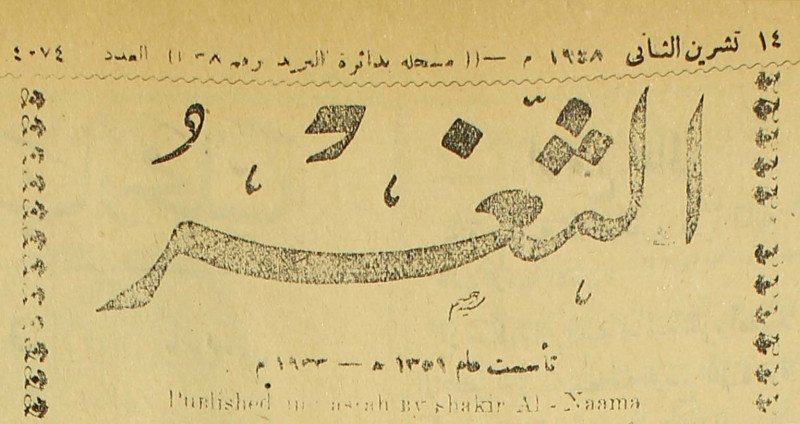 ١٤ تشرين الثاني ١٩٤٨ م —(( مسجله بدائرة البريد رقم ١٣٨)) العدد ٤٠٧٤
الثَّغْرُ
تأسست عام ١٣٥١ ه — ١٩٣٣ م
Published in Basrah By Shakir Al-Naama